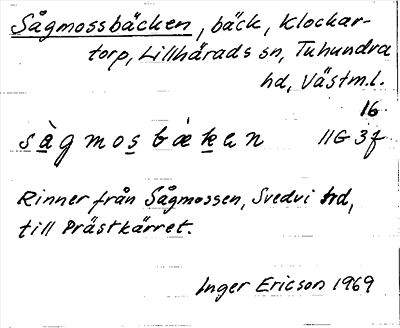 Sågmossbäcken, bäck, Klockar-
torp, Lillhärads sn, Tuhundra
hd, Västm.l.
16
sågmosbäken 11G 3f
Rinner från Sågmossen, Svedvi hd,
till Prästkärret.
Inger Ericson 1969